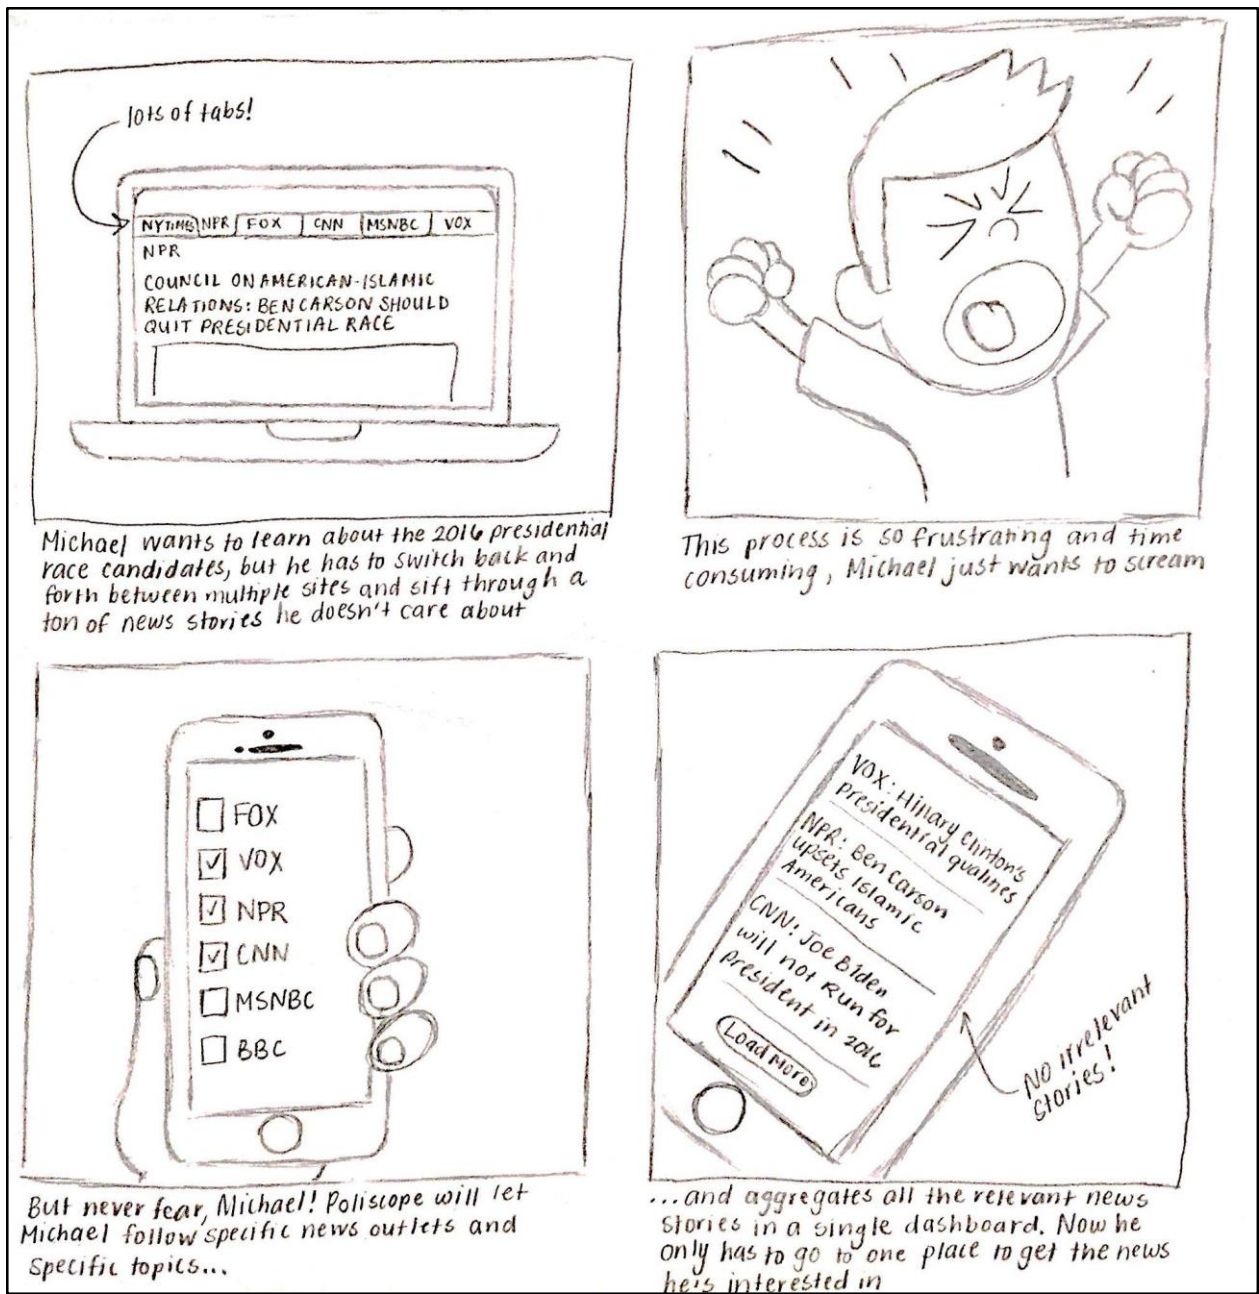 lots of tabs!
NYTIMES NPR FOX CNN MSNBC VOX
NPR
COUNCIL ON AMERICAN-ISLAMIC
RELATIONS: BEN CARSON SHOULD
QUIT PRESIDENTIAL RACE
Michael wants to learn about the 2016 presidential
race candidates, but he has to switch back and
forth between multiple sites and sift through a
ton of news stories he doesn't care about
This process is so frustrating and time
consuming, Michael just wants to scream
FOX
VOX
NPR
CNN
MSNBC
BBC
But never fear, Michael! Poliscope will let
Michael follow specific news outlets and
specific topics...
VOX: Hillary Clinton's
presidential qualities
NPR: Ben Carson
upsets Islamic
Americans
CNN: Joe Biden
will not Run for
president in 2016
Load More
NO irrelevant
stories!
...and aggregates all the relevant news
stories in a single dashboard. Now he
only has to go to one place to get the news
he's interested in